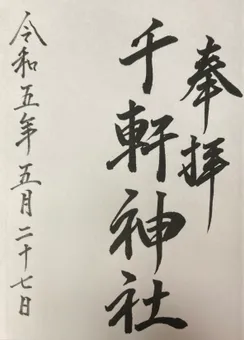 奉拝
千軒神社
令和五年五月二十七日